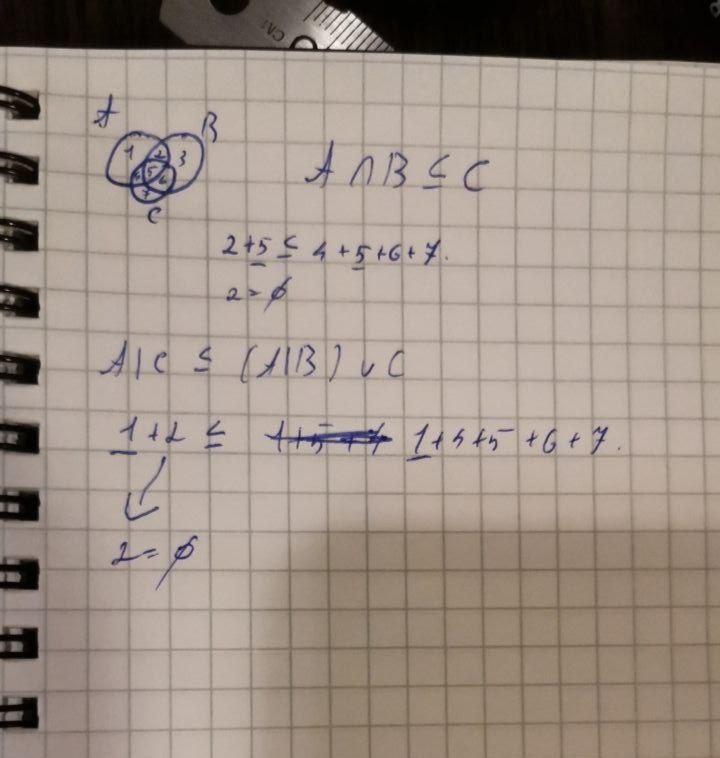 A
B
1 2 3
4 5 6
7
C
A ∩ B ⊆ C
2+5 ⊆ 4+5+6+7.
2=∅
A\C ⊆ (A\B) ∪ C
1+2 ⊆ 1+5+4 1+4+5+6+7.
2=∅